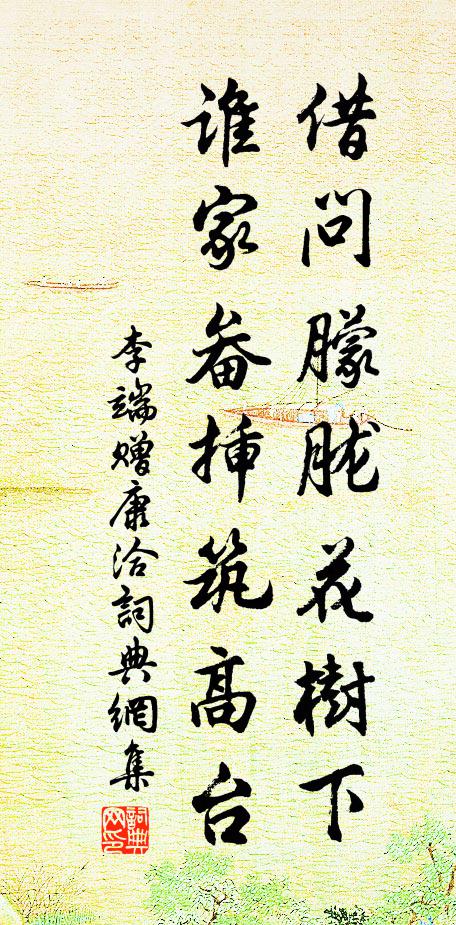 借问朦胧花樹下
谁家畚挿筑高台
李端赠康洽詞典網集
詞典网印